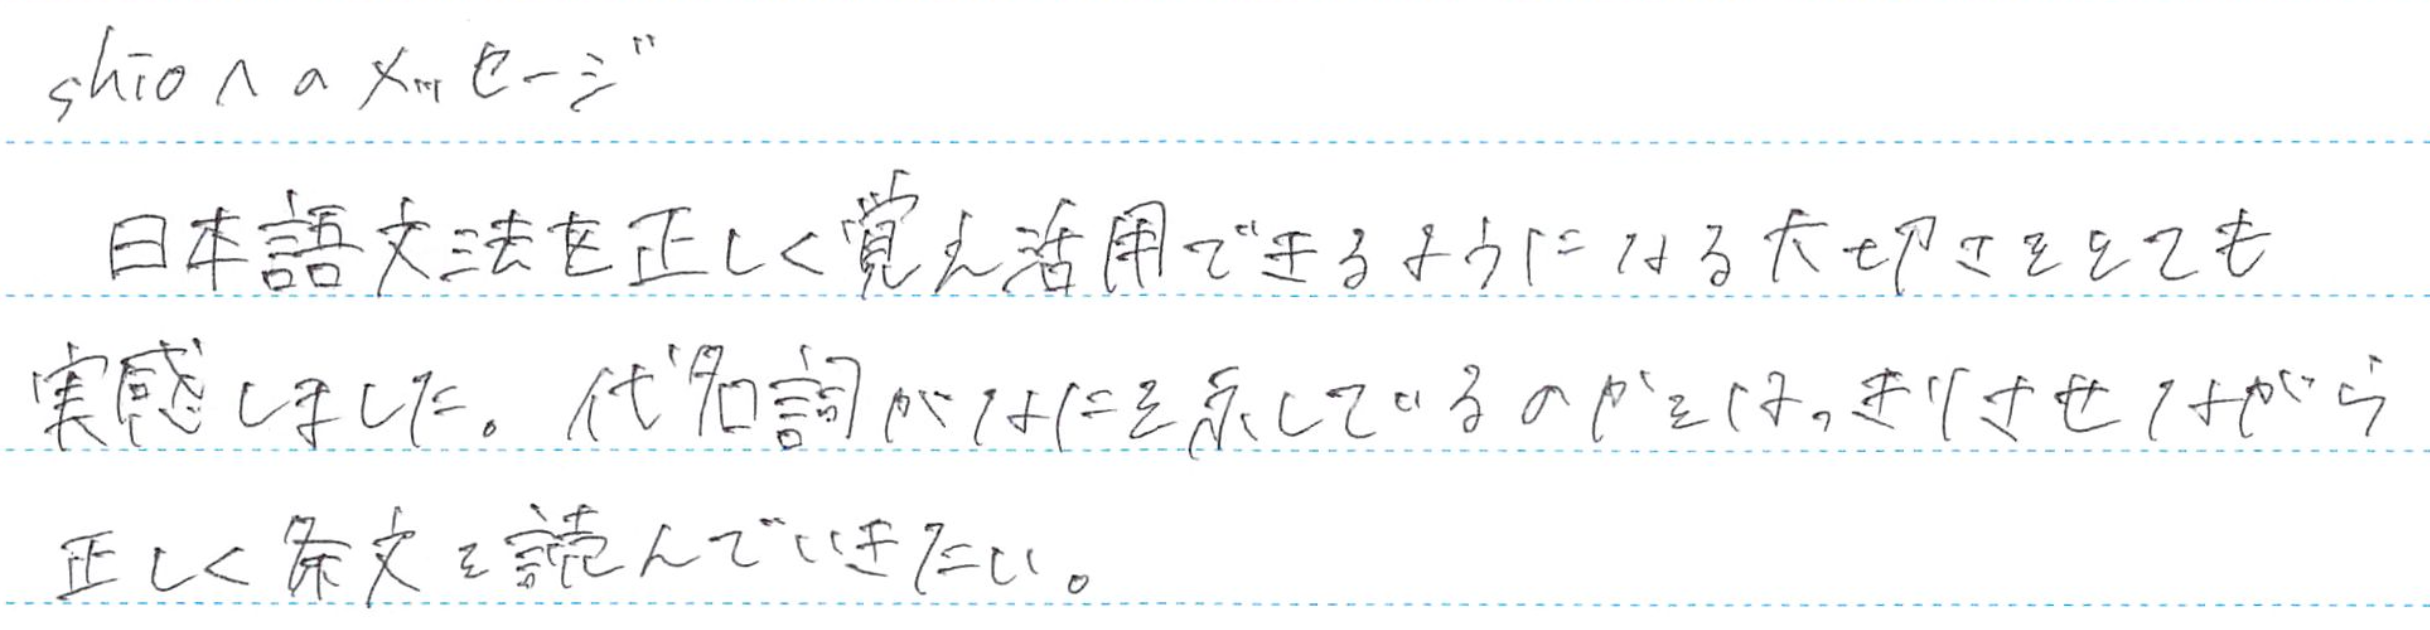 shioへのメッセージ
日本語文法を正しく覚え活用できるようになる大切さをとても
実感しました。代名詞がなにを示しているのかをはっきりさせながら
正しく条文を読んでいきたい。